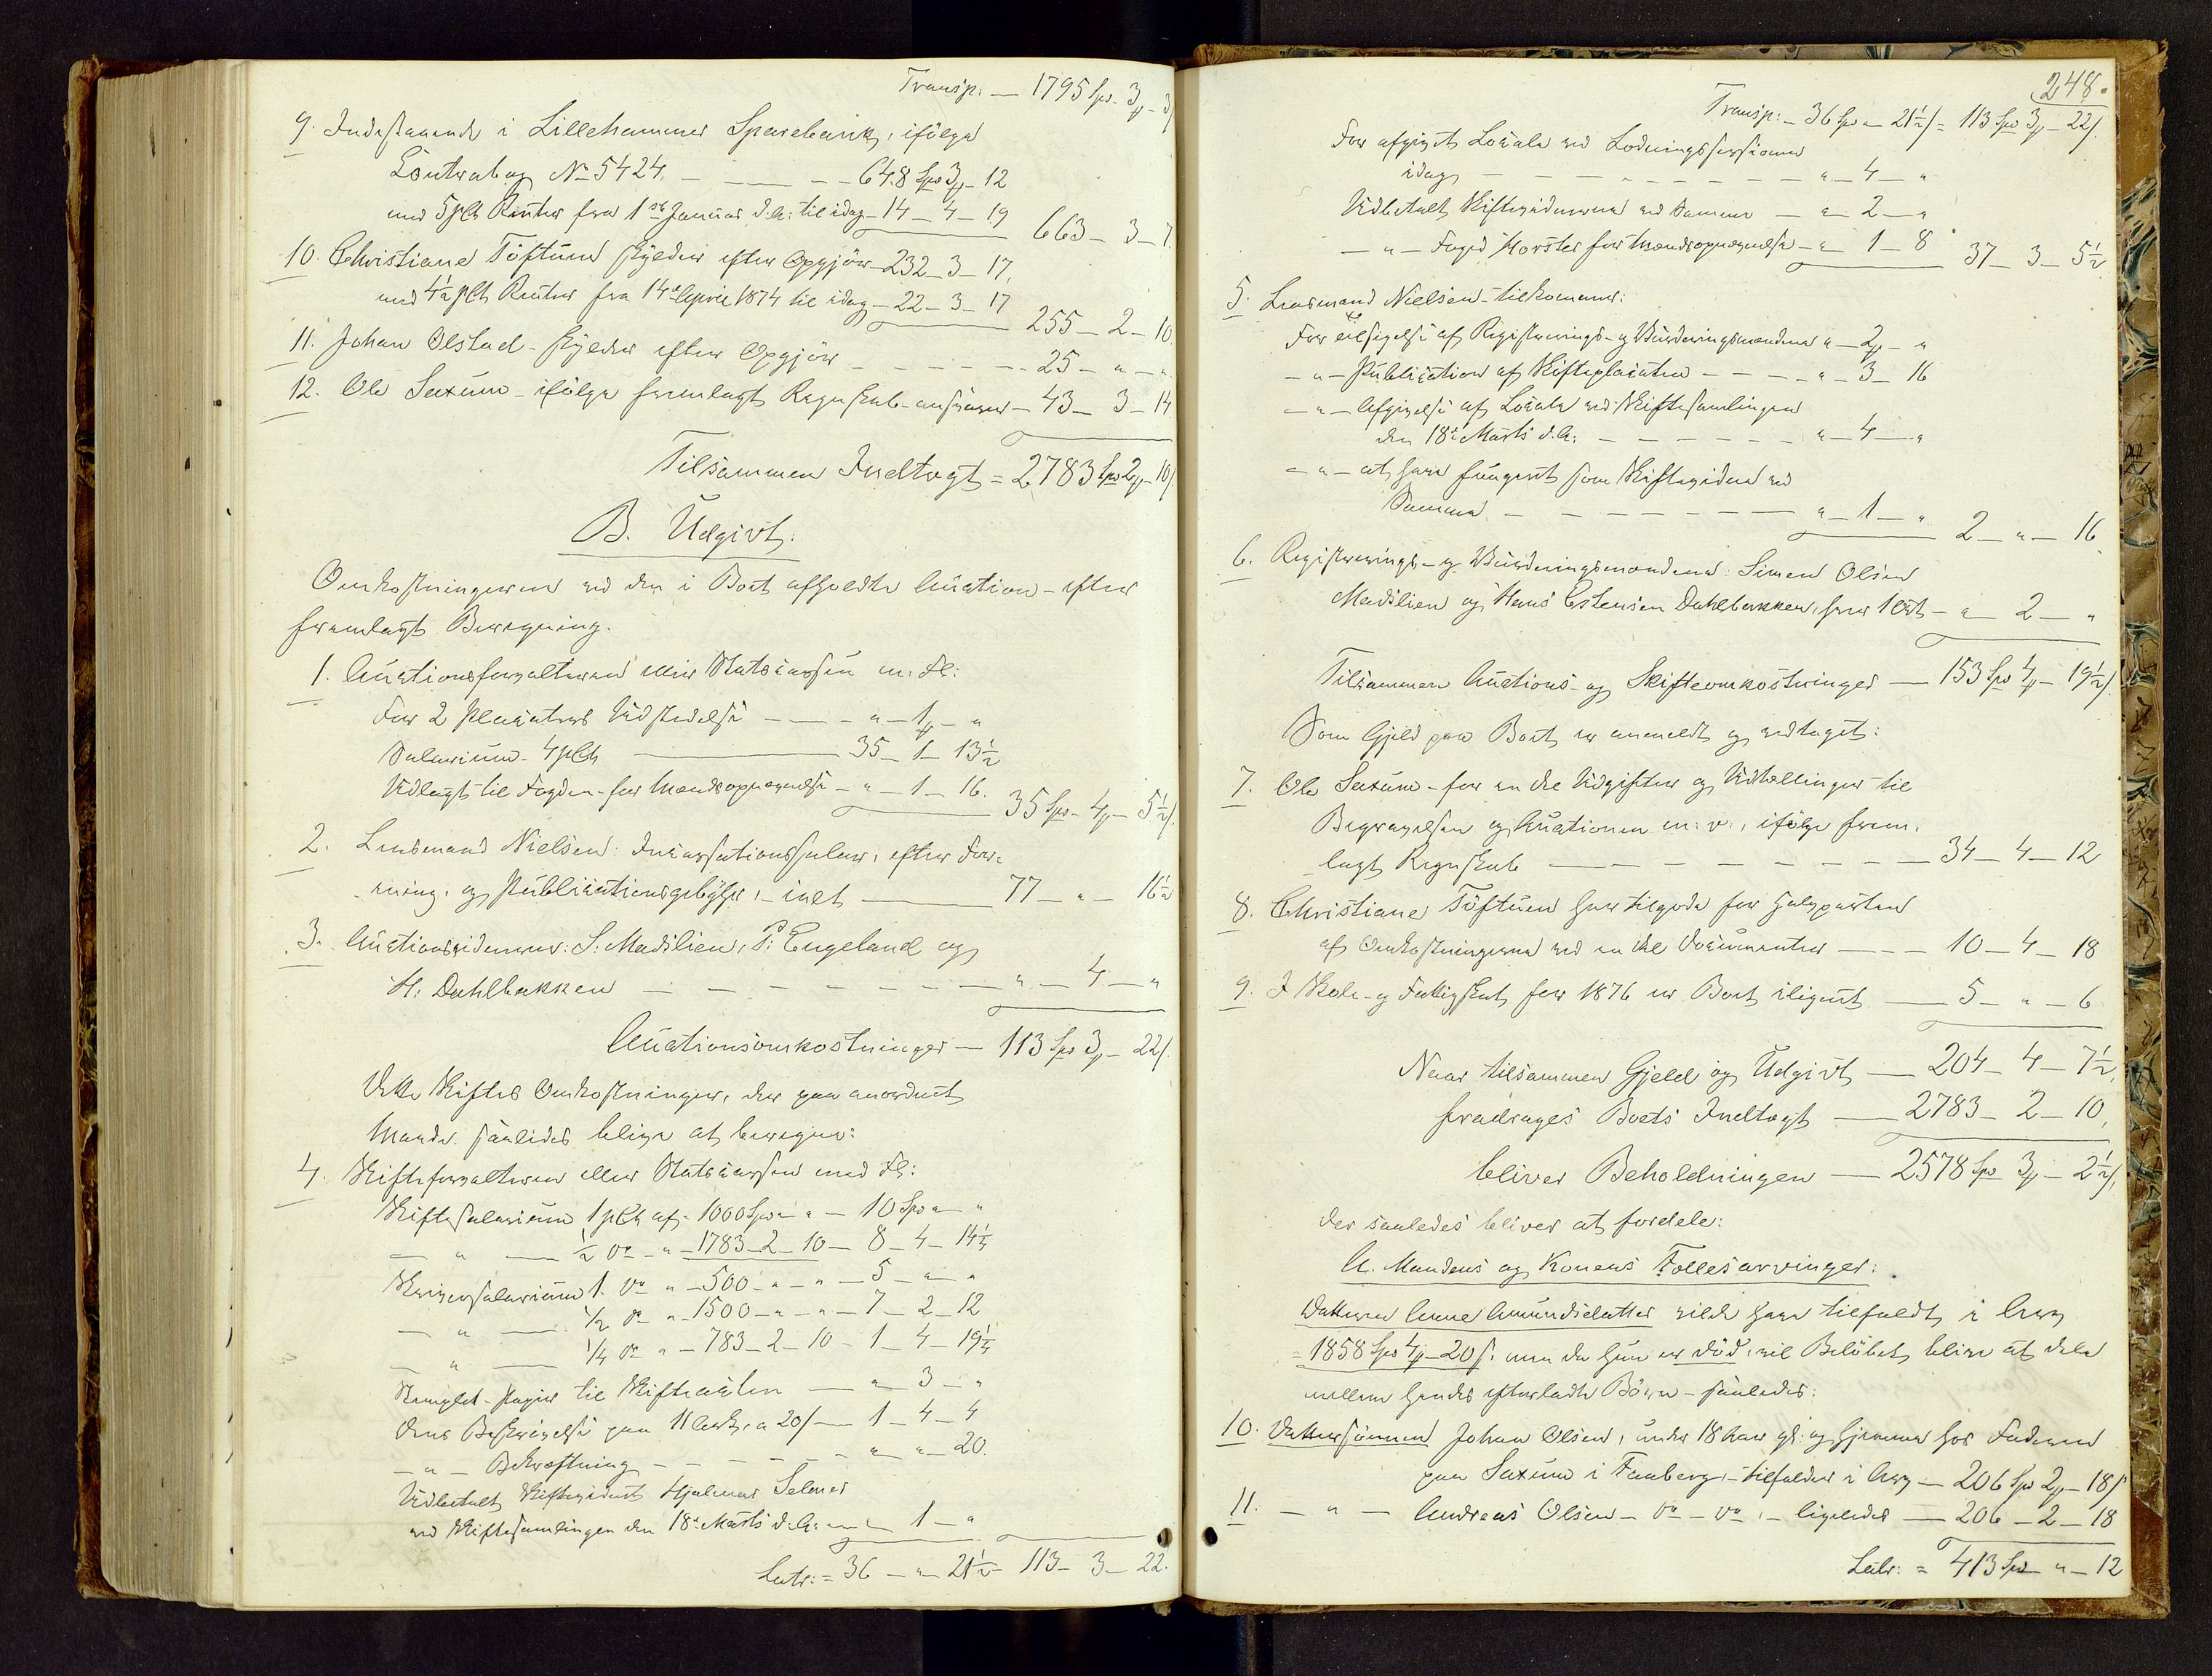 Transp: — 1795 Spd. 3 ₰ - 3
9. Indestaaende i Lillehammer Sparebank, ifölge
Contrabog No 5424. — 648 Spd 3 ₰ - 12
med 5 pCt Renter fra 1ste Januar d.A: til idag - 14 - 4 - 19 663 - 3 - 7.
10. Christiane Töftum skylder efter Opgjör - 232 - 3 - 17,
med 4½ pCt Renter fra 14de April 1874 til idag - 22 - 3 - 17 255 - 2 - 10
11. Johan Olstad - skylder efter Opgjör - - - - - 25 - " - "
12. Ole Saxum - ifölge fremlagt Regnskab - ansvarer - 43 - 3 - 14
Tilsammen Indtægt = 2783 Spd 2 ₰ - 10 ſ.
B. Udgivt:
Omkostningerne ved den i Boet afholdte Auction - efter
fremlagt Beregning.
1. Auctionsforvalteren eller Statscassen m: Fl:
For 2 Placaters Udstedelse — - " - 1 ₰ - "
Salarium - 4 pCt — 35 - 1 - 13½
Udlagt til Fogden - for Mandsopnævnelse - " - 1 - 16. 35 Spd - 4 ₰ - 5½ ſ.
2. Lensmand Nielsen: Incassationssalær, efter For-
ening, og Publicationsgebyhr, - ialt — 77 - " - 16½
3. Auctionsvidnerne: S: Madslien, P: Engeland og
H: Dahlbakken — " - 4 - "
Auctionsomkostninger — 113 Spd 3 ₰ - 22 ſ.
Dette Skiftes Omkostninger, der paa anordnet
Maade saaledes blive at beregne:
4. Skifteforvalteren eller Statscassen med Fl:
Skiftesalarium 1 pCt af - 1000 Spd - " - " - 10 Spd " - "
— " — ½ do - " - 1783 - 2 - 10 - 8 - 4 - 14¼
Skriversalarium 1. do " - 500 - " - " - 5 - " - "
— " — ½ do " - 1500 - " - " - 7 - 2 - 12
— " — ¼ do " - 783 - 2 - 10 - 1 - 4 - 19¼
Stemplet Papir til Skifteacten — " 3 - "
Dens Beskrivelse paa 11 Ark, a 20 ſ — 1 - 4 - 4
— " — Bekræftning - - - - " - " - 20.
Udbetalt Skiftevidnet Hjalmar Selmer
ved Skiftesamlingen den 18de Marts d:A: — " 1 - "
Latr: = 36 — " - 21½ 113 - 3 - 22.
248.
Transp: - 36 Spd " - 21½ ſ = 113 Spd 3 ₰ - 22 ſ.
For afgivet Locale ved Lodningsforretningen
idag - - - - - - - - - " - 4 - "
Udbetalt Skiftevidnerne ved Samme - " - 2 - "
— " - Foged Horster for Mandsopnævnelse - " 1 - 8 37 - 3 - 5½
5. Lensmand Nielsen tilkommer:
For Tilsigelse af Registrerings- og Vurderingsmændene " - 2 ₰ - "
- " - Publication af Skifteplacaten - - - - " - 3 - 16
- " - Afgivelse af Locale ved Skiftesamlingen
den 18de Marts d.A: - - - - - - - " - 4 - "
- " - at have fungeret som Skiftevidne ved
Samme - - - - - - - " - 1 - " 2 - " - 16
6. Registrerings- og Vurderingsmændene: Simen Olsen
Madslien og Hans Estensen Dahlbakken, hver 1 Ort - " 2 - "
Tilsammen Auctions- og Skifteomkostninger — 153 Spd 4 ₰ - 19½ ſ.
Som Gjeld paa Boet er anmeldt og vedtaget:
7. Ole Saxum - for en Del Udgifter og Udtællinger til
Begravelsen og Auctionen m: v:, ifölge frem-
lagt Regnskab — 34 - 4 - 12
8. Christiane Töftum har tilgode for Halvparten
af Omkostningerne ved en Del Documenter — 10 - 4 - 18
9. I Skole- og Fattigskat for 1876 er Boet ilignet — 5 - " - 6
Naar tilsammen Gjeld og Udgivt — 204 - 4 - 7½,
fradrages Boets Indtægt — 2783 - 2 - 10,
bliver Beholdningen — 2578 Spd 3 ₰ - 2½ ſ,
der saaledes bliver at fordele:
A. Mandens og Konens Fællesarvinger:
Datteren Anne Amundsdatter vilde have tilfaldt i Arv
= 1858 Spd 4 ₰ - 20 ſ. men da hun er död, vil Belöbet blive at dele
mellem hendes efterladte Börn - saaledes:
10. Dattersönnen Johan Olsen, under 18 Aar gl: og hjemme hos Faderen
paa Saxum i Faaberg, - tilfalder i Arv — 206 Spd 2 ₰ - 18 ſ
11. — " — Andreas Olsen - do - do, - ligeledes — 206 - 2 - 18
Latr: = 413 Spd - " - 12